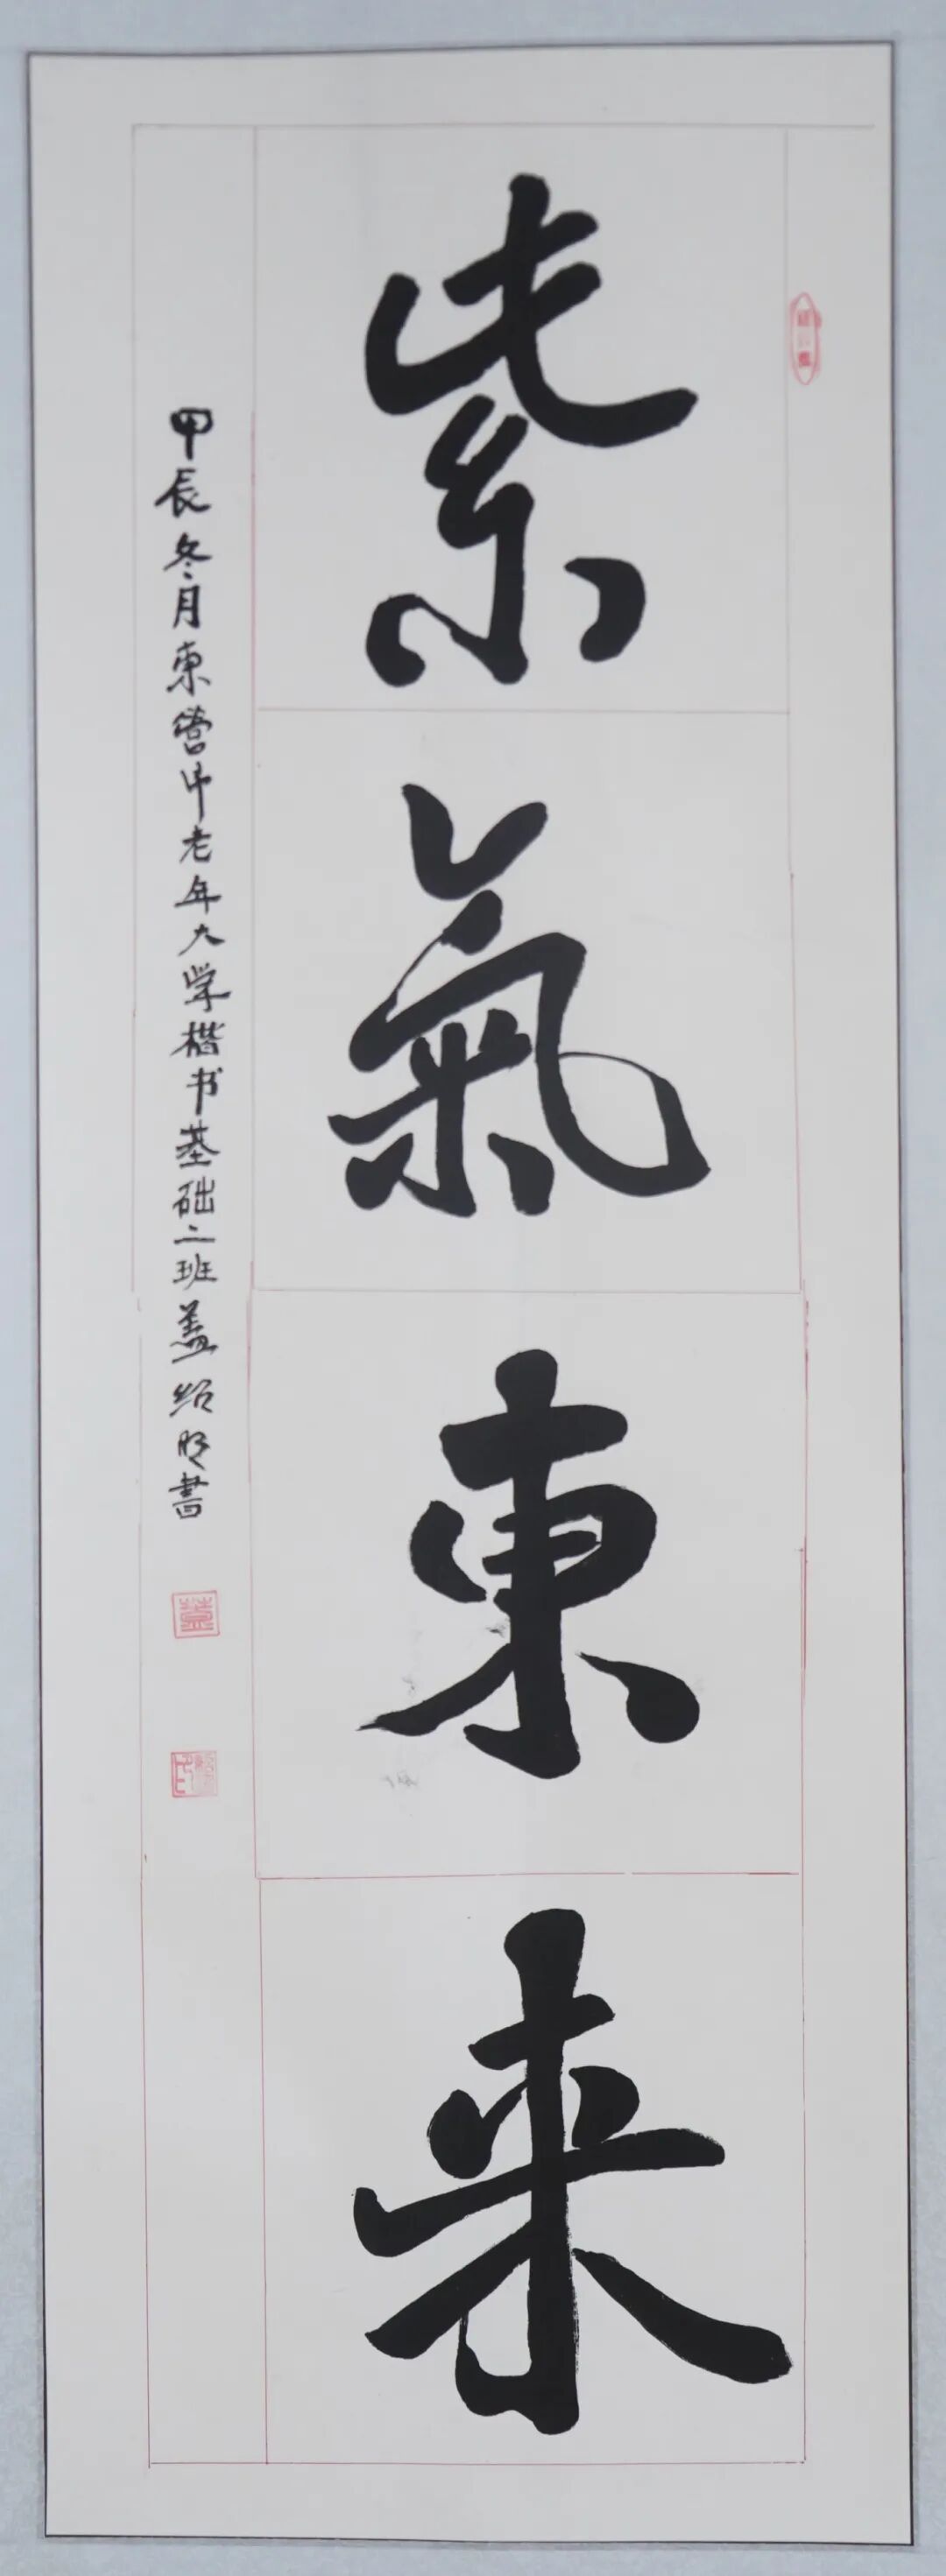 紫氣東來
甲辰冬月東营市老年大学楷书基础二班盖绍明書